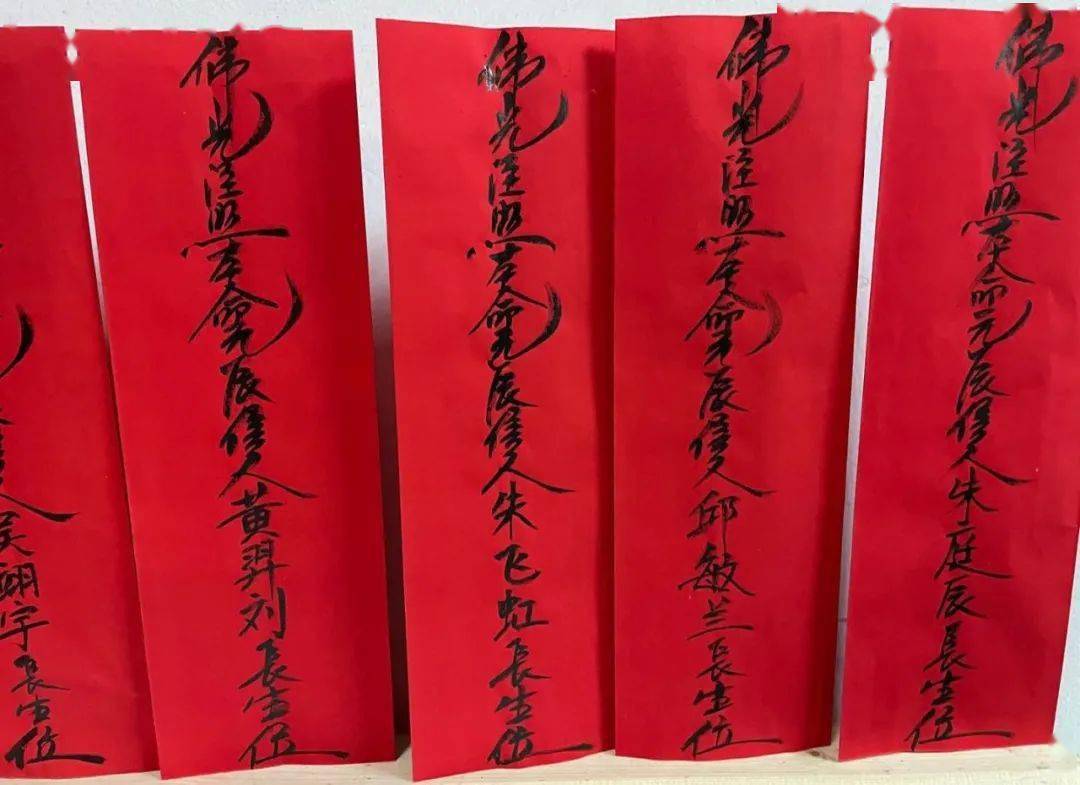 佛光注照本命元辰信人朱庭辰長生位
佛光注照本命元辰信人邱敏兰長生位
佛光注照本命元辰信人朱飞虹長生位
佛光注照本命元辰信人黄羿刘長生位
人吴宇長生位